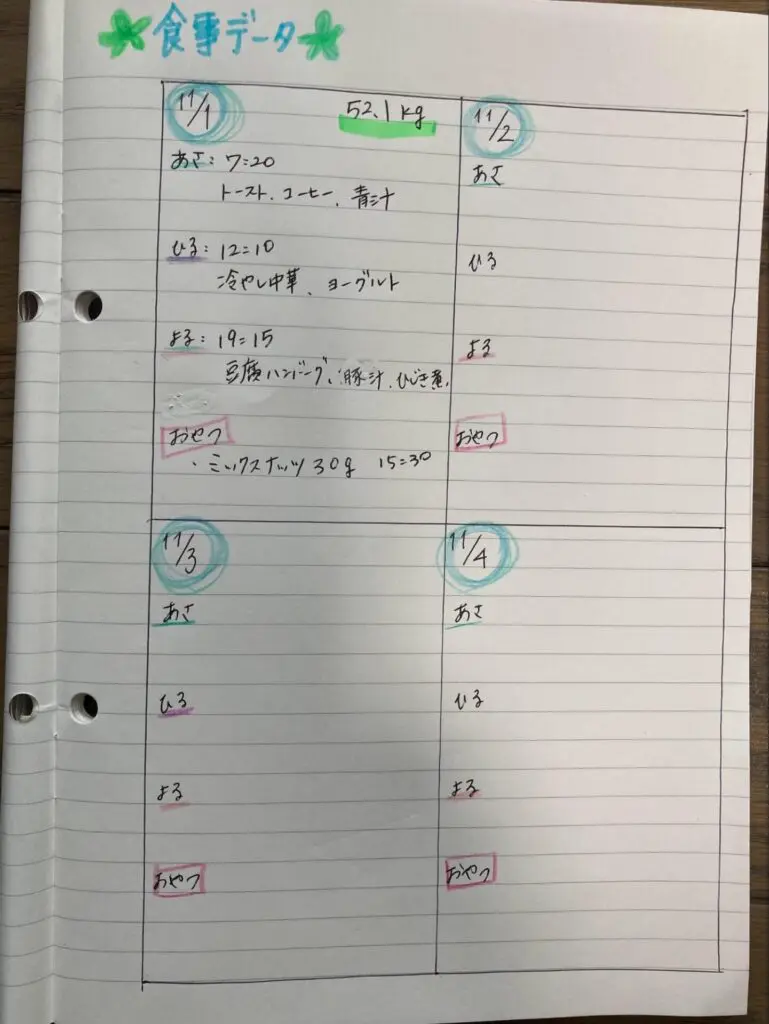 食事データ
11/1 52.1kg
あさ: 7:20
トースト、コーヒー、青汁
ひる: 12:10
冷やし中華、ヨーグルト
よる: 19:15
豆腐ハンバーグ、豚汁、ひじき煮、
おやつ
・ミックスナッツ 30g 15:30
11/2
あさ
ひる
よる
おやつ
11/3
あさ
ひる
よる
おやつ
11/4
あさ
ひる
よる
おやつ